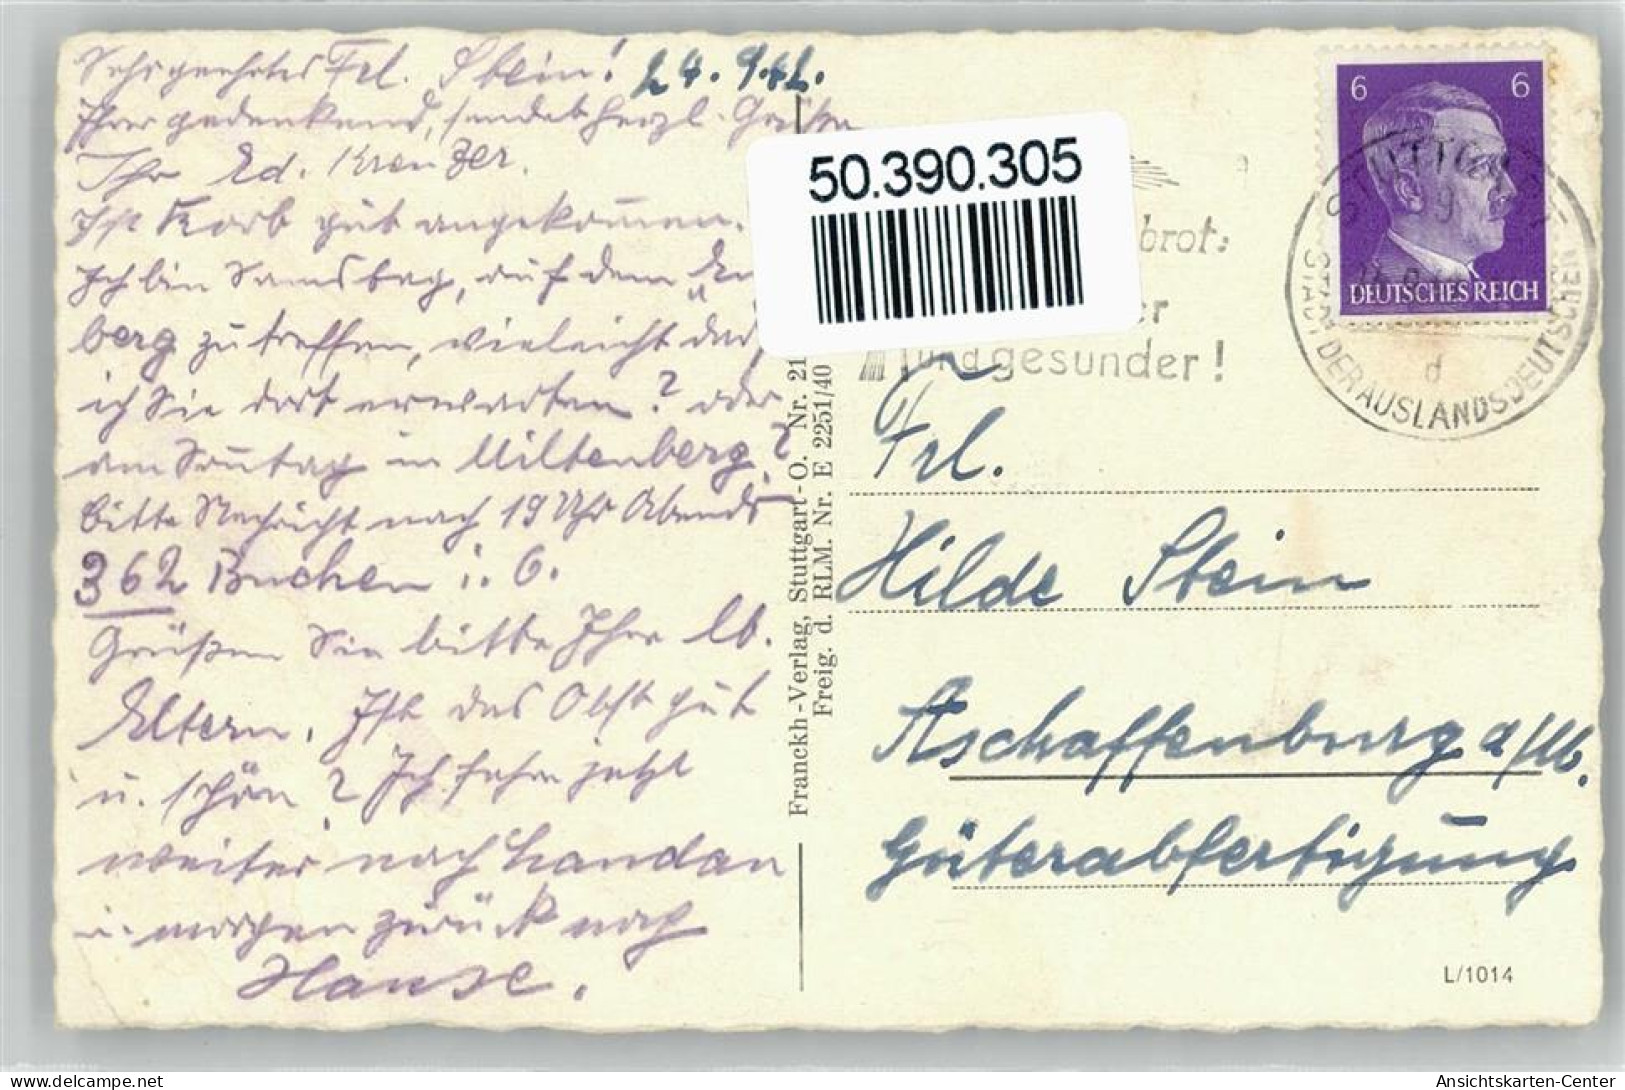 Sehr geehrtes Frl. Stein! 24.9.42.
Ihrer gedenkend, sendet herzl. Grüße
Ihr Ed. Kreuzer.
Ist Korb gut angekommen.
Ich bin Samstag, auf dem En
berg zu treffen, vielleicht daß
ich Sie dort erwarten? oder
am Sonntag in Miltenberg?
bitte Nachricht nach 19 Uhr Abends
362 Buchen i. O.
Grüßen Sie bitte Ihre lb.
Eltern. Ist das Obst gut
u. schön? Ich fahre jetzt
weiter nach Landau
u. morgen zurück nach
Hause.
Franckh-Verlag, Stuttgart-O. Nr. 21
Freig. d. RLM. Nr. E 2251/40
50.390.305
brot:
er
und gesunder!
6 6
DEUTSCHES REICH
STUTTGART
STADT DER AUSLANDSDEUTSCHEN
d
Frl.
Hilde Stein
Aschaffenburg a/M.
Güterabfertigung
L/1014
Ansichtskarten-Center